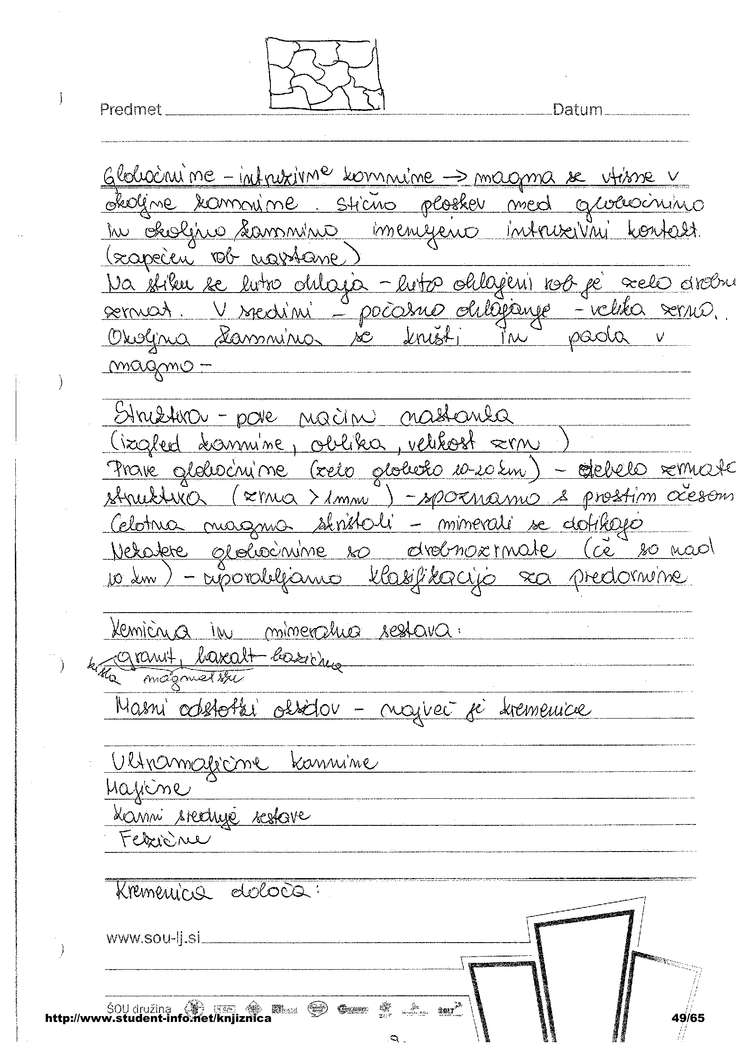 Predmet Datum
Globočnine - intruzivne kamnine → magma se vtisne v
okoljne kamnine. Stično ploskev med globočnino
in okoljno kamnino imenujemo intruzivni kontakt.
(zapečen rob nastane)
Na stiku se hitro ohlaja - hitro ohlajeni rob je zelo drobno
zrnat. V sredini - počasno ohlajanje - velika zrna.
Okoljna kamnina se kruši in pada v
magmo -
Struktura - pove način nastanka
(izgled kamnine, oblika, velikost zrn)
Prave globočnine (zelo globoko 10-20 km) - debelo zrnata
struktura (zrna > 1mm) - spoznamo s prostim očesom
Celotna magma skristali - minerali se dotikajo
Nekatere globočnine so drobnozrnate (če so nad
10 km) - uporabljamo klasifikacijo za predornine
Kemična in mineralna sestava:
granit, bazalt - bazična
kisla magmatski
Masni odstotki oksidov - največ je kremenice
Ultramafične kamnine
Mafične
Kamni srednje sestave
Felzične
Kremenica določa:
www.sou-lj.si
ŠOU družina
http://www.student-info.net/knjiznica 49/65